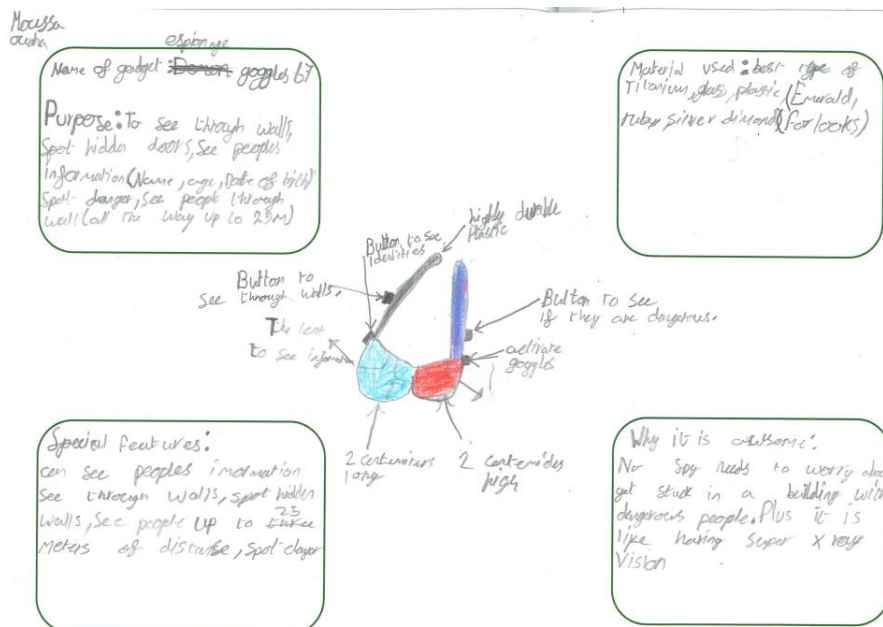 Moussa
espionage
Name of gadget : Demon goggles b7
Purpose: To see through walls,
Spot hidden doors, see peoples
information (Name, age, Date of bith)
Spot danger, see people through
wall (all the way up to 25M)
Material used: best type of
Titanium, glass, plastic, (Emerald,
ruby, silver dimond) (for looks)
highly durable
Plastic
Button to see
identities
Button to
see through walls.
The lens
to see information
Button to see
if they are dangerous.
activate
goggles
2 centimiters
long
2 centemides
high
Special features:
can see peoples imormation
see through walls, spot hidden
25
walls, see people up to three
meters of distance, spot danger
Why it is awsome:
No spy needs to worry abou
get stuck in a building with
dangerous people. Plus it is
like having super x ray
Vision